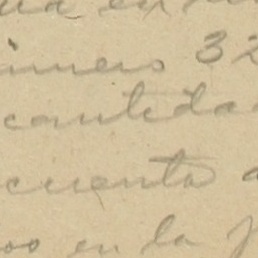 en
úmero 32
cantida
cuenta a
os en la